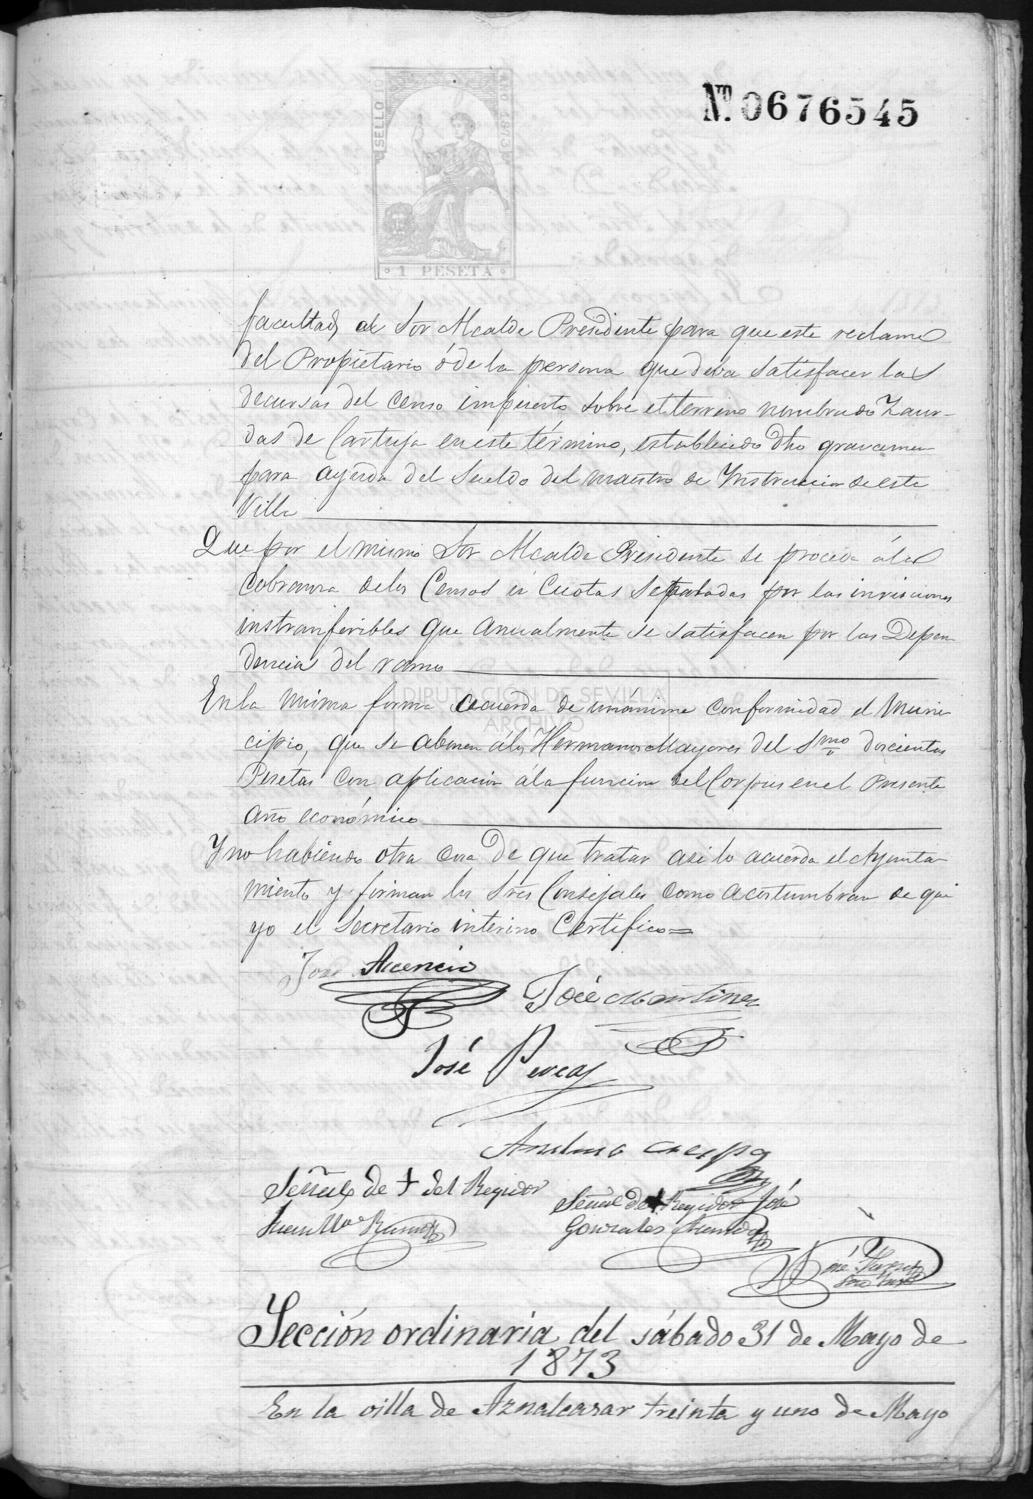 Nº 0676545
SELLO 10º
AÑO 1873
1 PESETA
facultad al Sor Alcalde Presidente para que este reclame
del Propietario ó de la persona que deba satisfacer las
decursas del censo impuesto sobre el terreno nombrado Zaur-
das de Cartuja en este término, establecido dho gravamen
para ayuda del Sueldo del maestro de Instruccion de esta
Villa
Que por el mismo Sor Alcalde Presidente se proceda á la
cobranza de los Censos en Cuotas Separadas por las
instranferibles que anualmente se satisfacen por las Depen
dencias del ramo
DIPUTACIÓN DE SEVILLA
ARCHIVO
En la misma forma acuerda de unanime conformidad el Muni
cipio, que se abonen á los Hermanos Mayores del Smo doscientas
Pesetas con aplicacion á la funcion del Corpus en el presente
año económico
Y no habiendo otra cosa de que tratar asi lo acuerda el Ayunta
miento y firman los Sres Consejales como acostumbran de que
yo el Secretario interino Certifico=
José Asencio
José Martinez
José Perea
Anselmo Crespo
Señal de + del Regidor
Señal de + Regidor José
Juan Ma Ramos
Gonzales
Seccion ordinaria del sábado 31 de Mayo de
1873
En la villa de Aznalcazar treinta y uno de Mayo